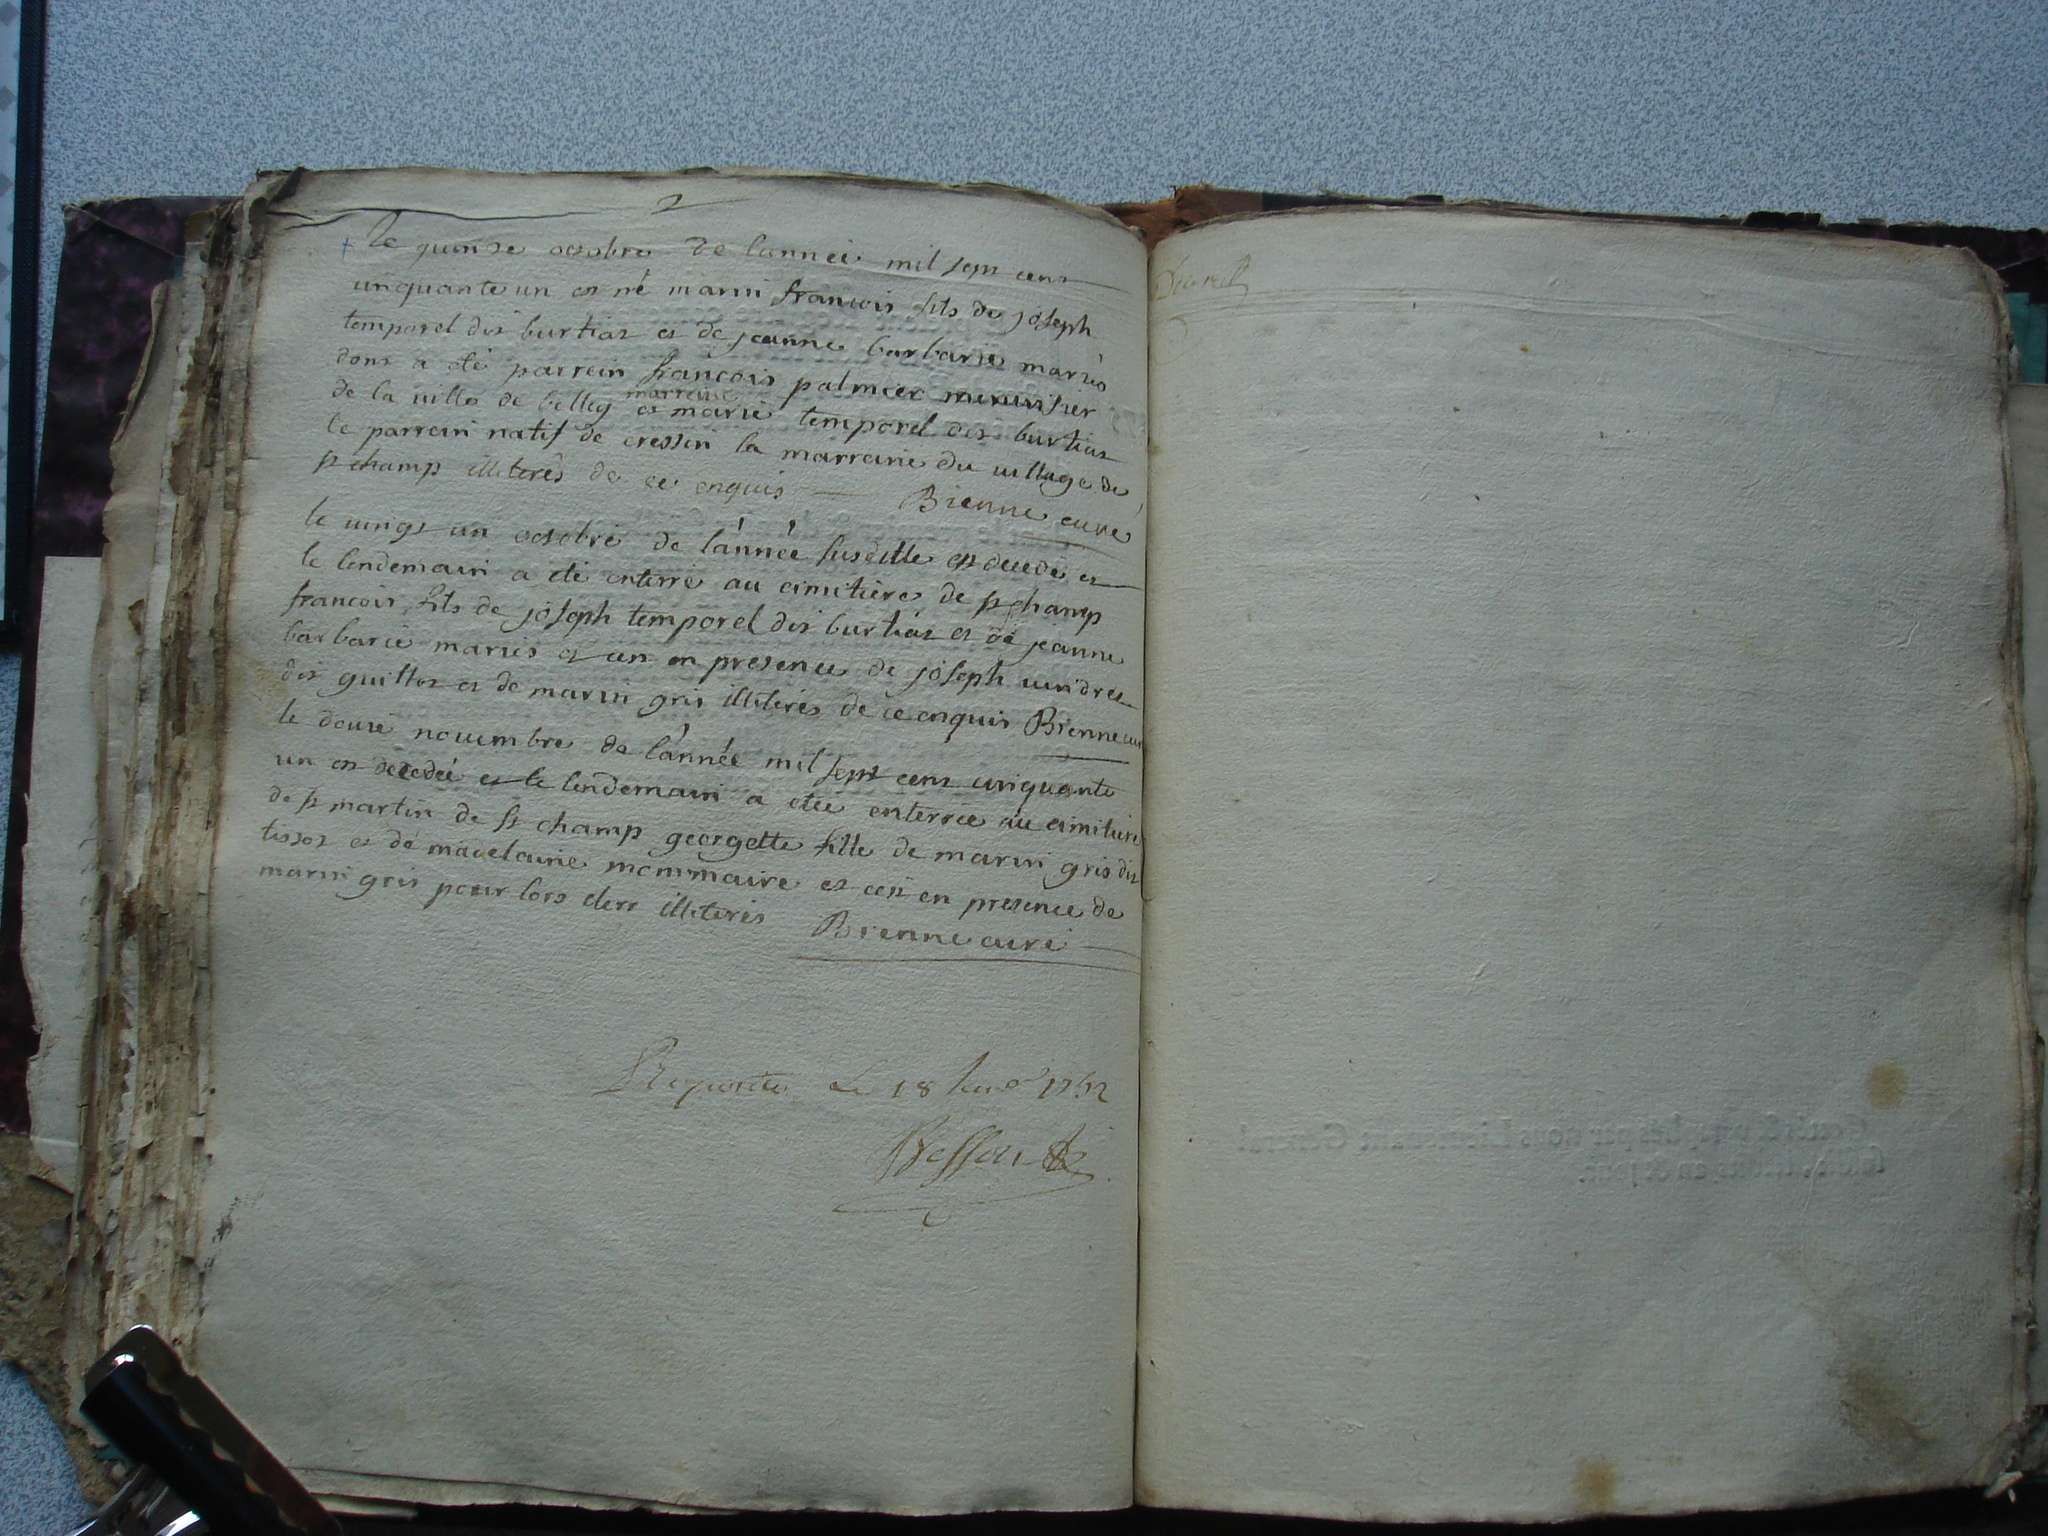 Le quinze octobre de l'année mil sept cent
cinquante un est né marin francois fils de joseph
temporel dit burtiaz et de jeanne barbarie mariés
dont a été parrein francois palmier menuisier
marreine
de la ville de belley et marie temporel dit burtiaz
le parrein natif de cressin la marreine du village de
st champ illiterés de ce enquis Bienne curé
le vingt un octobre de l'année susditte est decedé et
le lendemain a été enterré au cimitiere de st champ
francois fils de joseph temporel dit burtiaz et de jeanne
barbarie mariés et cen en presence de joseph
dit guillot et de marin gris illiterés de ce enquis Bienne cur
le douze novembre de l'année mil sept cent cinquante
un est decedée et le lendemain a etée enterrée au cimitiere
de st martin de st champ georgette fille de marin gris dit
tissot et de madelaine mommaire et cest en presence de
marin gris pour lors clerc illiterés
Bienne curé
Le 18 1752